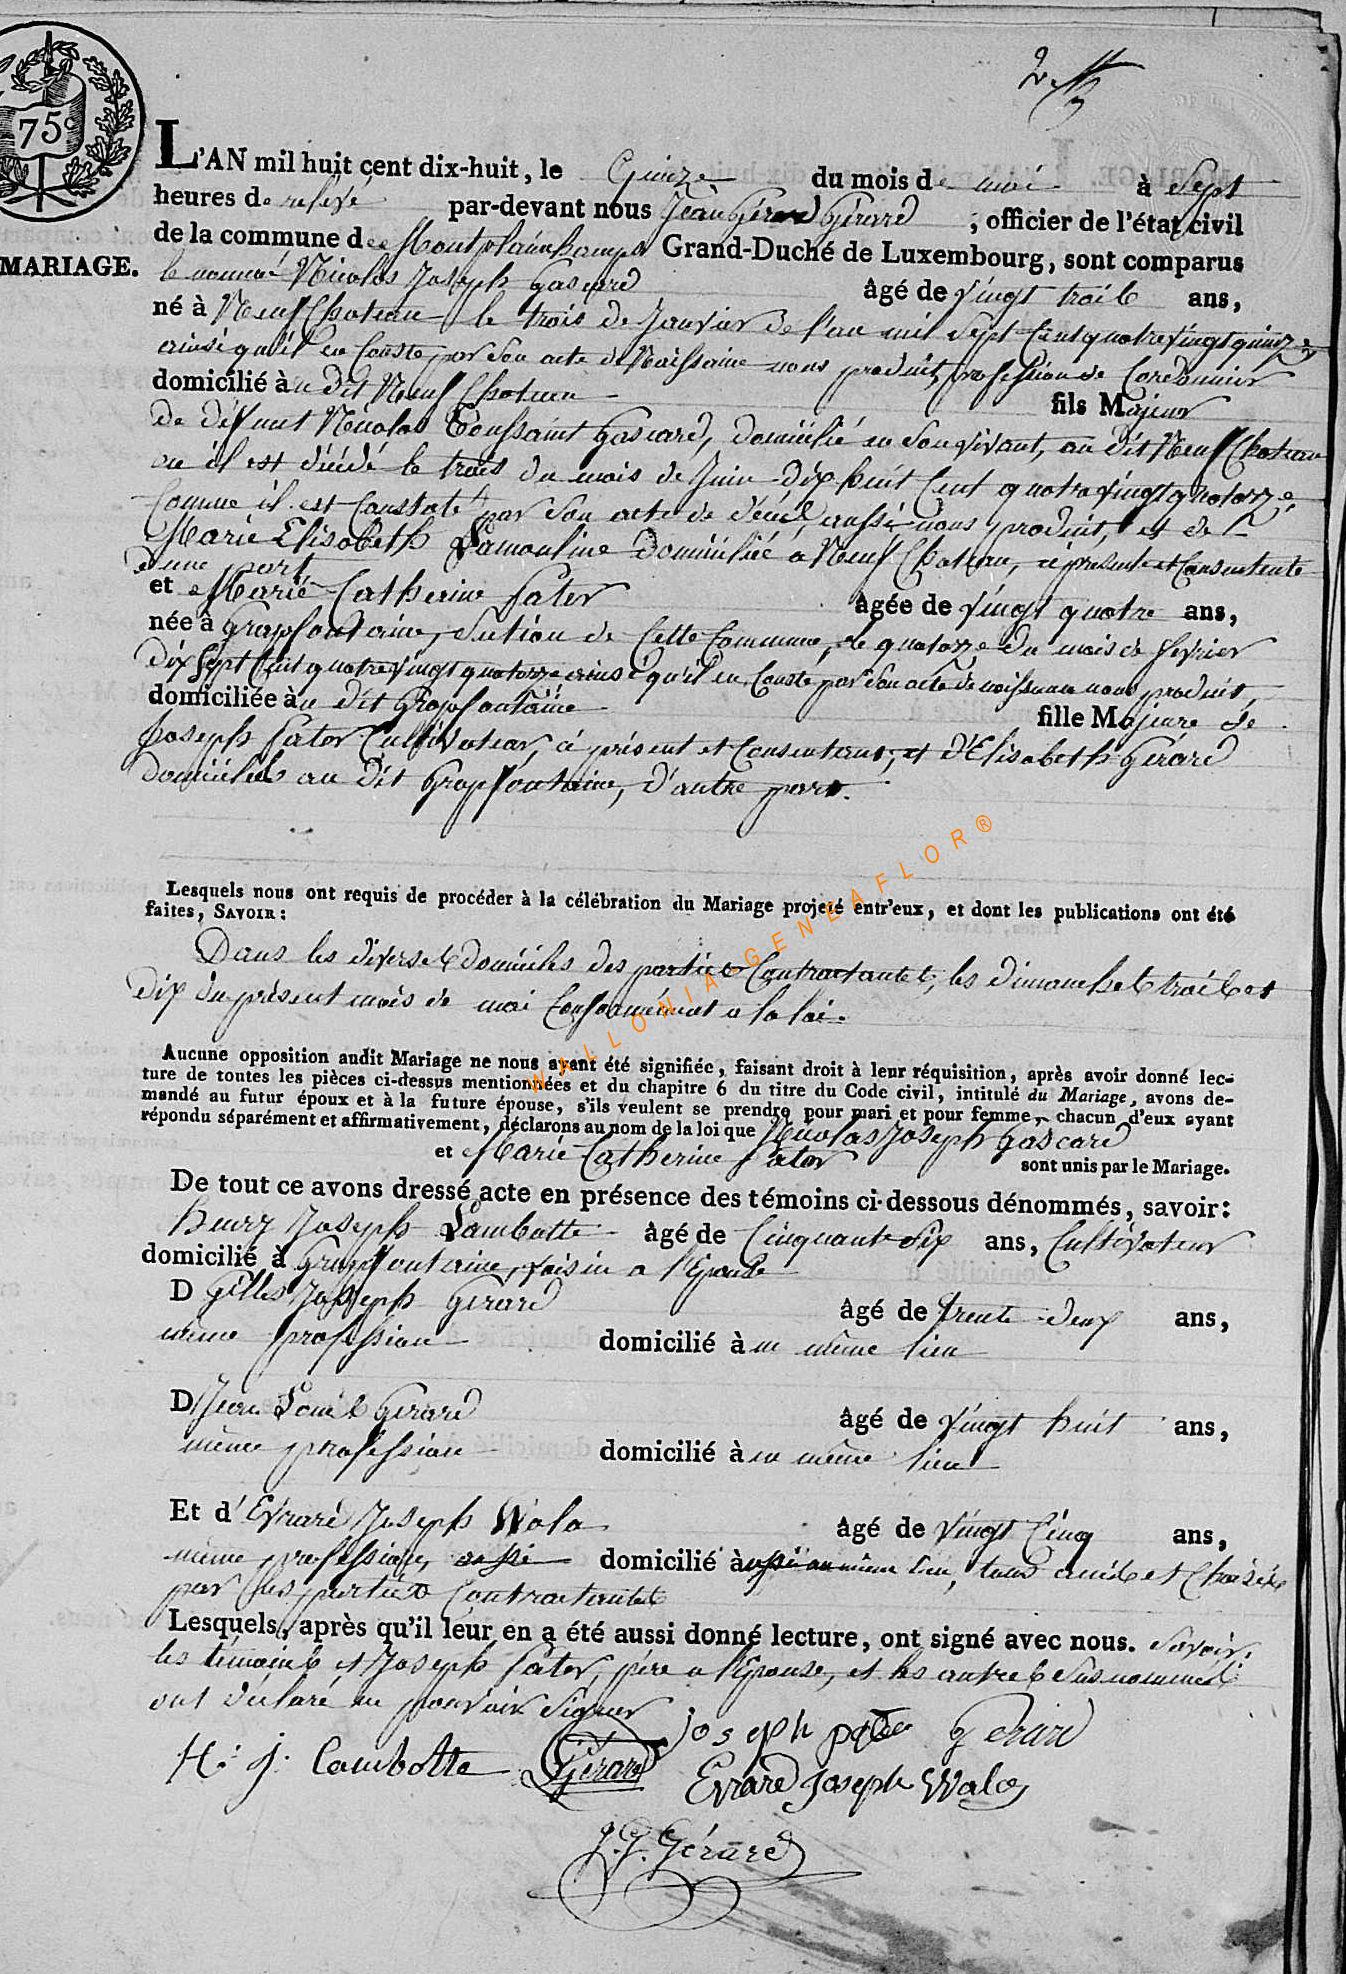 75c
MARIAGE.
L'AN mil huit cent dix-huit, le Quinze du mois de mai à Sept
heures de relevé par-devant nous Jean Gérard Gérard, officier de l'état civil
de la commune de Montplainchamps Grand-Duché de Luxembourg, sont comparus
le nommé Nicolas Joseph Gascard âgé de vingt trois ans,
né à Neuf Chateau le trois de Janvier de l'an mil Sept Cent quatrevingt quinze
ainsi qu'il en Conste par Son acte de Naissance nous produit, profession de Cordonnier
domicilié àu dit Neuf Chateau fils Majeur
de défunt Nicolas Toussaint Gascard, domicilié en Son vivant, au dit Neuf Chateau
ou il est décédé le trois du mois de Juin dix huit Cent quatrevingt quatorze
Comme il est Constaté par Son acte de décés, aussi nous produit, et de
Marie Elisabeth Lamouline domiciliée a Neuf Chateau, ci présente et Consentente
d'une part
et Marie Catherine Pater âgée de vingt quatre ans,
née à Grapfontaine, Section de Cette Commune, le quatorze du mois de fevrier
dix Sept Cent quatrevingt quatorze ainsi qu'il en Conste par Son acte de naissance nous produit,
domiciliée àu dit Grapfontaine fille Majeure de
Joseph Pater Cultivateur, ci présent et Consentant, et d'Elisabeth Gérard
domiciliés au dit Grapfontaine, d'autre part.
WALLONIA-GENEAFLOR®
Lesquels nous ont requis de procéder à la célébration du Mariage projeté entr'eux, et dont les publications ont été
faites, SAVOIR:
Dans les diverses domiciles des parties Contractantes, les dimanches trois et
dix du présent mois de mai Conformément a la loi.
Aucune opposition audit Mariage ne nous ayant été signifiée, faisant droit à leur réquisition, après avoir donné lec-
ture de toutes les pièces ci-dessus mentionnées et du chapitre 6 du titre du Code civil, intitulé du Mariage, avons de-
mandé au futur époux et à la future épouse, s'ils veulent se prendre pour mari et pour femme, chacun d'eux ayant
répondu séparément et affirmativement, déclarons au nom de la loi que Nicolas Joseph Gascard
et Marie Catherine Pater sont unis par le Mariage.
De tout ce avons dressé acte en présence des témoins ci-dessous dénommés, savoir:
henry Joseph Lambotte âgé de Cinquante Six ans, Cultivateur
domicilié à Grapfontaine, voisin a l'Epouse
D Gilles Joseph Gerard âgé de trente-deux ans,
même profession domicilié àu même lieu
D Jean Louis Gerard âgé de vingt huit ans,
même profession domicilié àu même lieu
Et d'Evrard Joseph Wala âgé de vingt Cinq ans,
même profession, aussi domicilié à aussi au même lieu, tous amis et Choisis
par les parties Contractantes
Lesquels, après qu'il leur en a été aussi donné lecture, ont signé avec nous. Savoir.
les témoins et Joseph Pater, père a l'Epouse, et les autres Susnommés
ont déclaré ne pouvoir Signer
joseph pater gerard
H. j. Lambotte Gérard
Evrard joseph Wala
J. G. Gérard